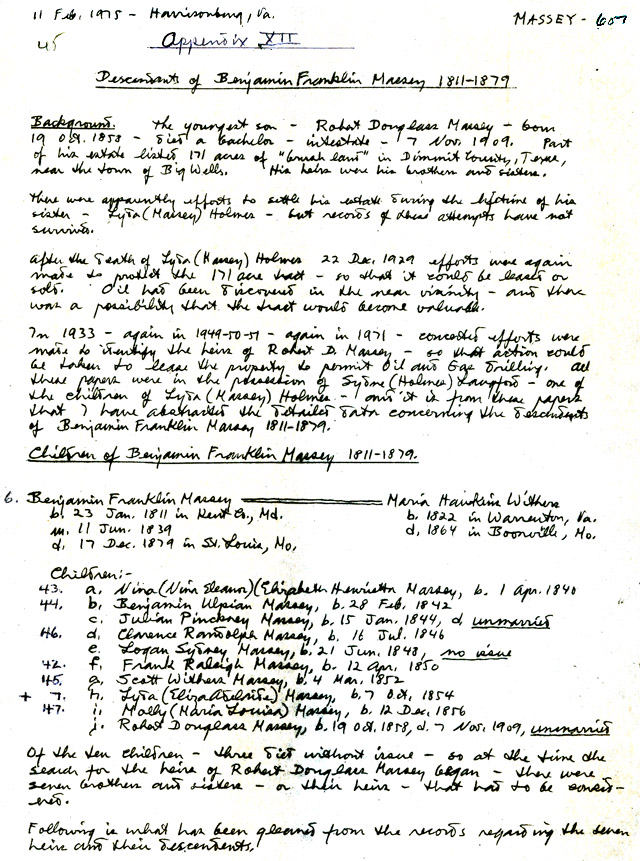 11 Feb. 1975 - Harrisonburg, Va.
MASSEY - 607
45
Appendix XII
Descendants of Benjamin Franklin Massey 1811-1879
Background. The youngest son - Robert Douglass Massey - born
19 Oct. 1858 - died a bachelor - intestate - 7 Nov. 1909. Part
of his estate listed 171 acres of "brush land" in Dimmit County, Texas,
near the town of Big Wells. His heirs were his brothers and sisters.
There were apparently efforts to settle his estate during the lifetime of his
sister - Lyda (Massey) Holmes - but records of these attempts have not
survived.
After the death of Lyda (Massey) Holmes 22 Dec. 1929 efforts were again
made to protect the 171 acre tract - so that it could be leased or
sold. Oil had been discovered in the near vicinity - and there
was a possibility that the tract would become valuable.
In 1933 - again in 1949-50-51 - again in 1971 - concerted efforts were
made to identify the heirs of Robert D. Massey - so that action could
be taken to lease the property to permit Oil and Gas drilling. All
these papers were in the possession of Sydne (Holmes) Langford - one of
the children of Lyda (Massey) Holmes - and it is from these papers
that I have abstracted the detailed data concerning the descendants
of Benjamin Franklin Massey 1811-1879.
Children of Benjamin Franklin Massey 1811-1879.
6. Benjamin Franklin Massey Maria Hawkins Withers
b. 23 Jan. 1811 in Kent Co., Md. b. 1822 in Warrenton, Va.
m. 11 Jun. 1839 d. 1864 in Boonville, Mo.
d. 17 Dec. 1879 in St. Louis, Mo.
Children:-
43. a. Nina (Nina Eleanor) (Elizabeth Henrietta Massey, b. 1 Apr. 1840
44. b. Benjamin Ulpian Massey, b. 28 Feb. 1842
c. Julian Pinckney Massey, b. 15 Jan. 1844, d. unmarried
46. d. Clarence Randolph Massey, b. 16 Jul. 1846
e. Logan Sydney Massey, b. 21 Jun. 1848, no issue
42. f. Frank Raleigh Massey, b. 12 Apr. 1850
45. g. Scott Withers Massey, b. 4 Mar. 1852
+ 7. h. Lyda (Eliza Adelside) Massey, b. 7 Oct. 1854
47. i. Molly (Maria Louisa) Massey, b. 12 Dec. 1856
j. Robert Douglass Massey, b. 19 Oct. 1858, d. 7 Nov. 1909, unmarried
Of the ten children - three died without issue - so at the time the
search for the heirs of Robert Douglass Massey began - there were
seven brothers and sisters - or their heirs - that had to be consid-
ered.
Following is what has been gleaned from the records regarding the seven
heirs and their descendents.